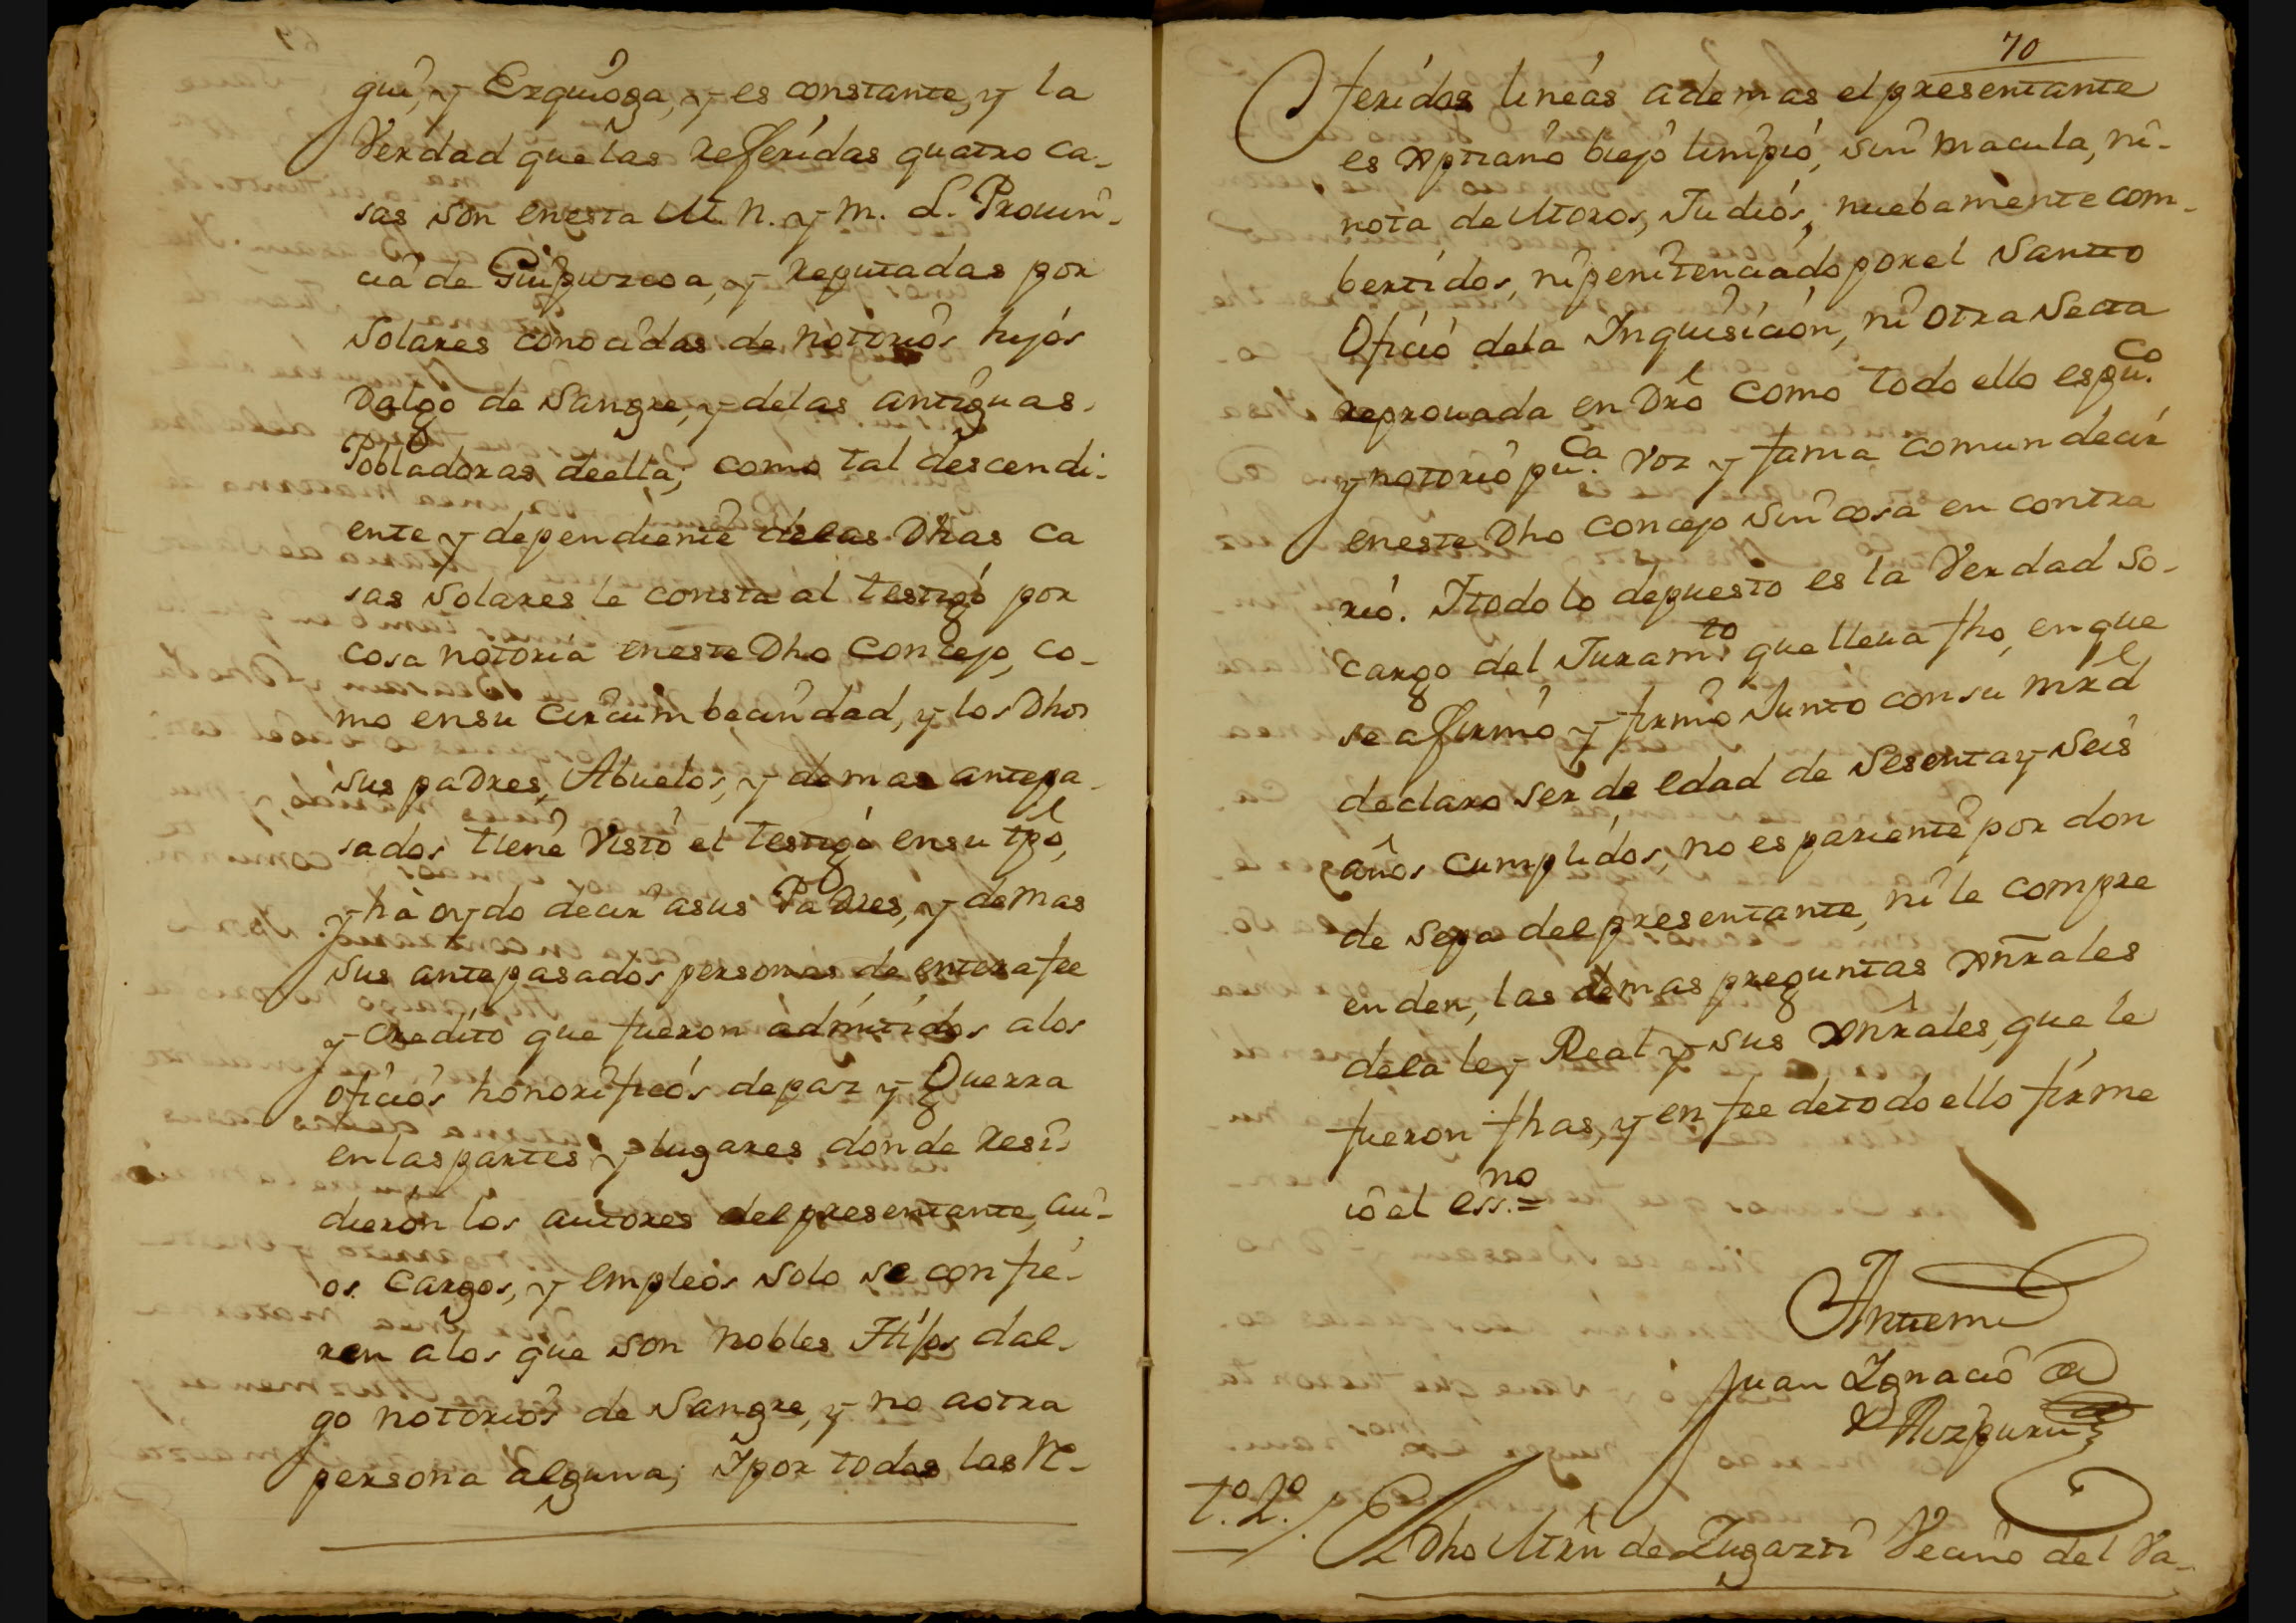 gui, y Ezquioga, y es constante, y la
Verdad que las Referidas quatro ca-
sas son en esta M. N. y M. L. Provin-
cia de Guipuzcoa, y Reputadas por
Solares conocidas de notorios hijos
Dalgo de Sangre, y delas antiguas
Pobladoras deella; como tal descendi-
ente y dependiente delas Dhas ca
sas Solares le consta al testigo por
cosa notoria eneste Dho Concejo, co-
mo ensu circumbecindad, y los Dhos
sus padres, Abuelos, y demas antepa-
sados tiene visto el testigo ensu tpo,
y há oydo decir asus Padres, y demas
sus antepasados personas de entera fee
y Credito que fueron admitidos alos
oficios honorificos depaz y Guerra
enlas partes y lugares donde Resi-
dieron los autores del presentante, cui-
os Cargos, y empleos solo se confie-
ren alos que son nobles Hijos dal-
go notorios de Sangre, y no aotra
persona alguna; Ypor todas las Re-
70
feridas lineas ademas el presentante
es Xptiano biejo limpio, sin macula, ni-
nota de Moros, Judios, nuebamente com-
bertidos, ni penitenciado por el Santto
Oficio dela Inquisicion, ni otra Secta
reprovada en Dro como todo ello es pu.co
y notorio pu.ca voz y fama comun decir
eneste Dho concejo sin cosa en contra
rio. Ytodo lo depuesto es la Verdad so-
cargo del Juram.to que lleva fho, enque
se affirmo y firmo Junto con su mrd
declaro ser de edad de Sesenta y Seis
años cumplidos, no es pariente por don
de sepa del presentante, ni le compre
enden, las demas preguntas xnrales
dela ley Real y sus xnrales, que le
fueron fhas, y en fee detodo ello firme
io el ess.no =
Antemi
Juan Ignacio de
Aizpuru
t.o 2.o
El Dho Mrn de Zugazti Vecino del Va-